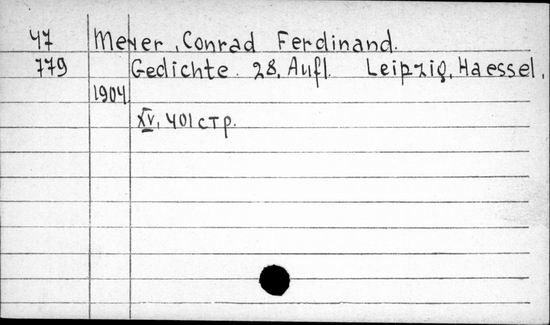 47 Meyer, Conrad Ferdinand.
779 Gedichte. 28. Aufl. Leipzig, Haessel,
1904.
XV, 401 стр.